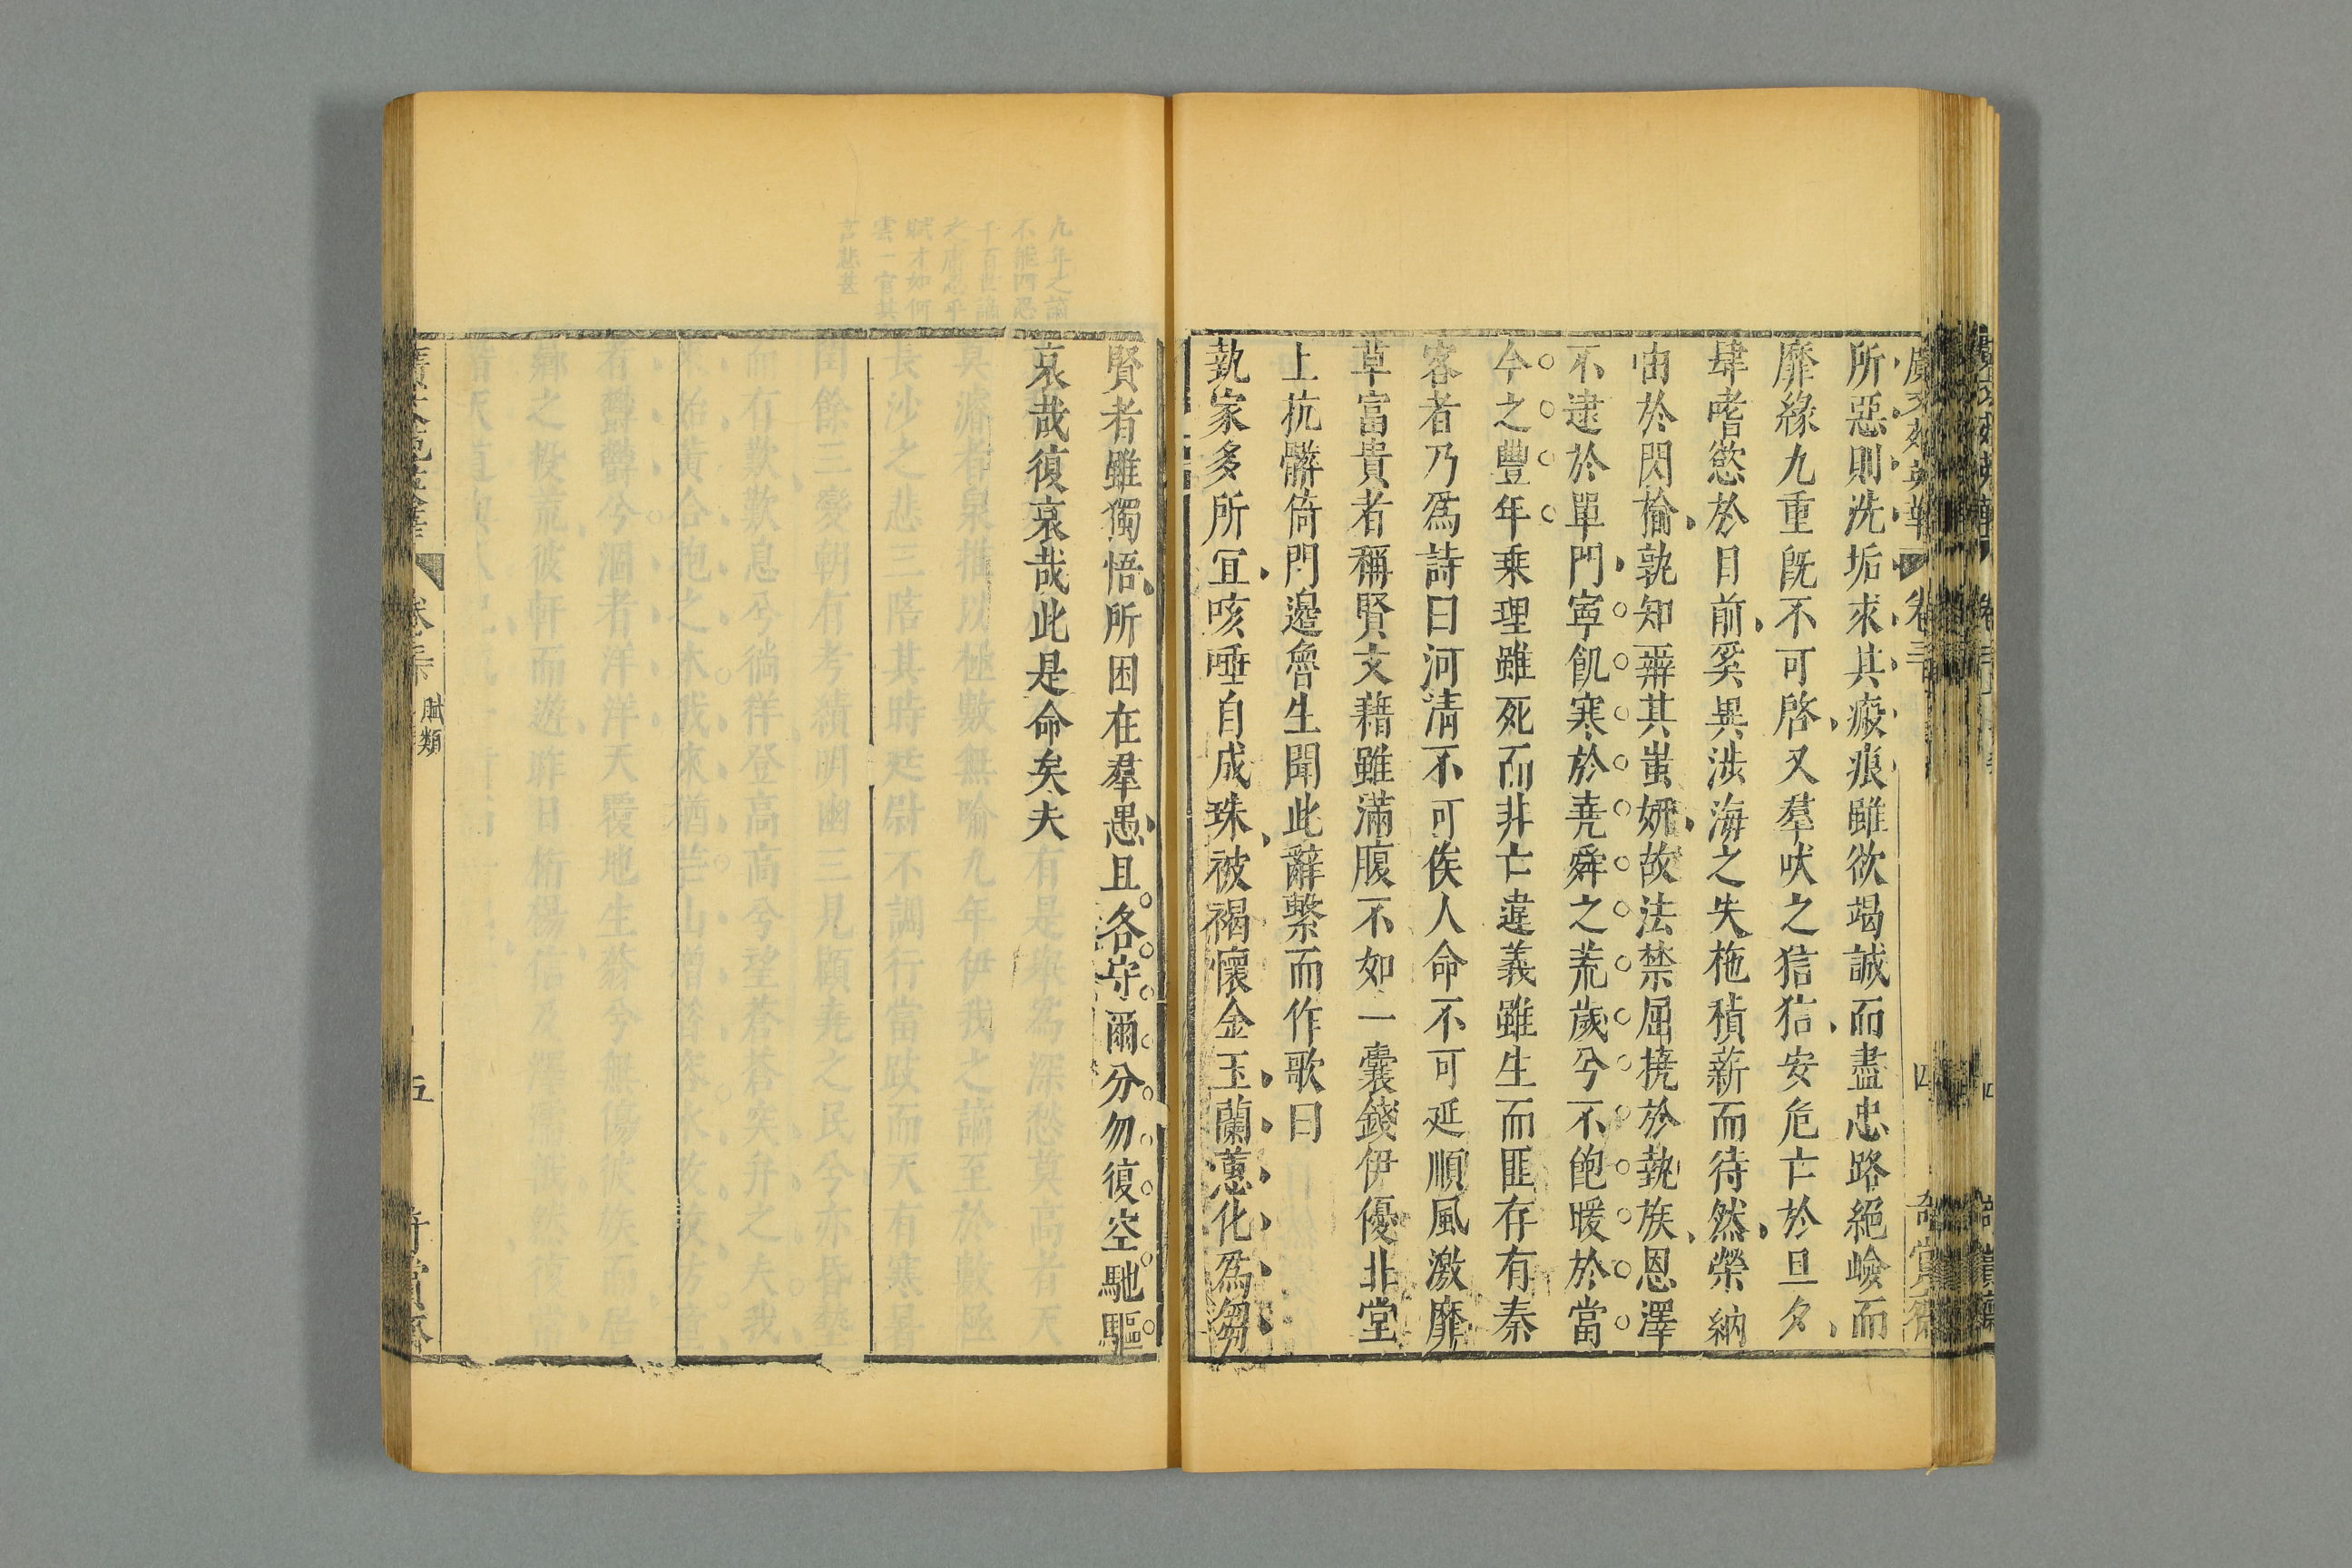 所惡則洗垢求其瘢痕雖欲竭誠而盡忠路絕嶮而
靡緣九重旣不可啓又羣吠之狺狺安危亡於旦夕
肆嗜慾於目前奚異涉海之失柂積薪而待然榮納
由於閃揄孰知辨其蚩妍故法禁屈撓於埶族恩澤
不逮於單門寧飢寒於堯舜之荒歲兮不飽暖於當
今之豐年乗理雖死而非亡違義雖生而匪存有秦
客者乃爲詩曰河淸不可俟人命不可延順風激靡
草富貴者稱賢文藉雖滿腹不如一囊錢伊優北堂
上抗髒倚門邊魯生聞此辭繫而作歌曰
埶家多所宜咳唾自成珠被褐懷金玉蘭蕙化爲芻
賢者雖獨悟所困在羣愚且各守爾分勿復空馳驅
哀哉復哀哉此是命矣夫
賦類
五